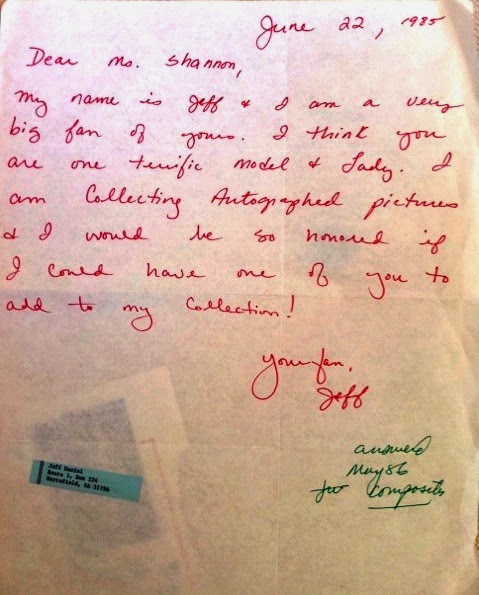 June 22, 1985
Dear Ms. Shannon,
My name is Jeff & I am a very
big fan of yours. I think you
are one terrific model & Lady. I
am Collecting Autographed pictures
& I would be so honored if
I could have one of you to
add to my Collection!
Your fan,
Jeff
answered
May 86
Jeff Daniel
Route 1, Box 224
Hartsfield, GA 31756
composites